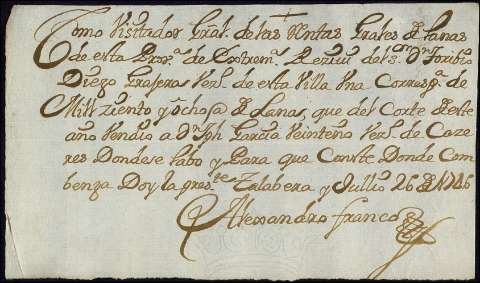 Como Visitador Gral. de las Rentas Grales de Lanas
de esta Prov.ª de Extrem.ª Reciui del s.or Dn Toribio
Diego Grageras Vez.º de esta Villa Vna Corresp.ª de
Mill ziento y ocho @ de Lanas, que del Corte de este
año Vendio a Dn Jph Garcia Veinteno Vez.º de Caze
res Donde se labo y Para que Conste Donde Com
benga Doy la pres.te Talabera y Jullio 26 de 1746
Alessandro Franco